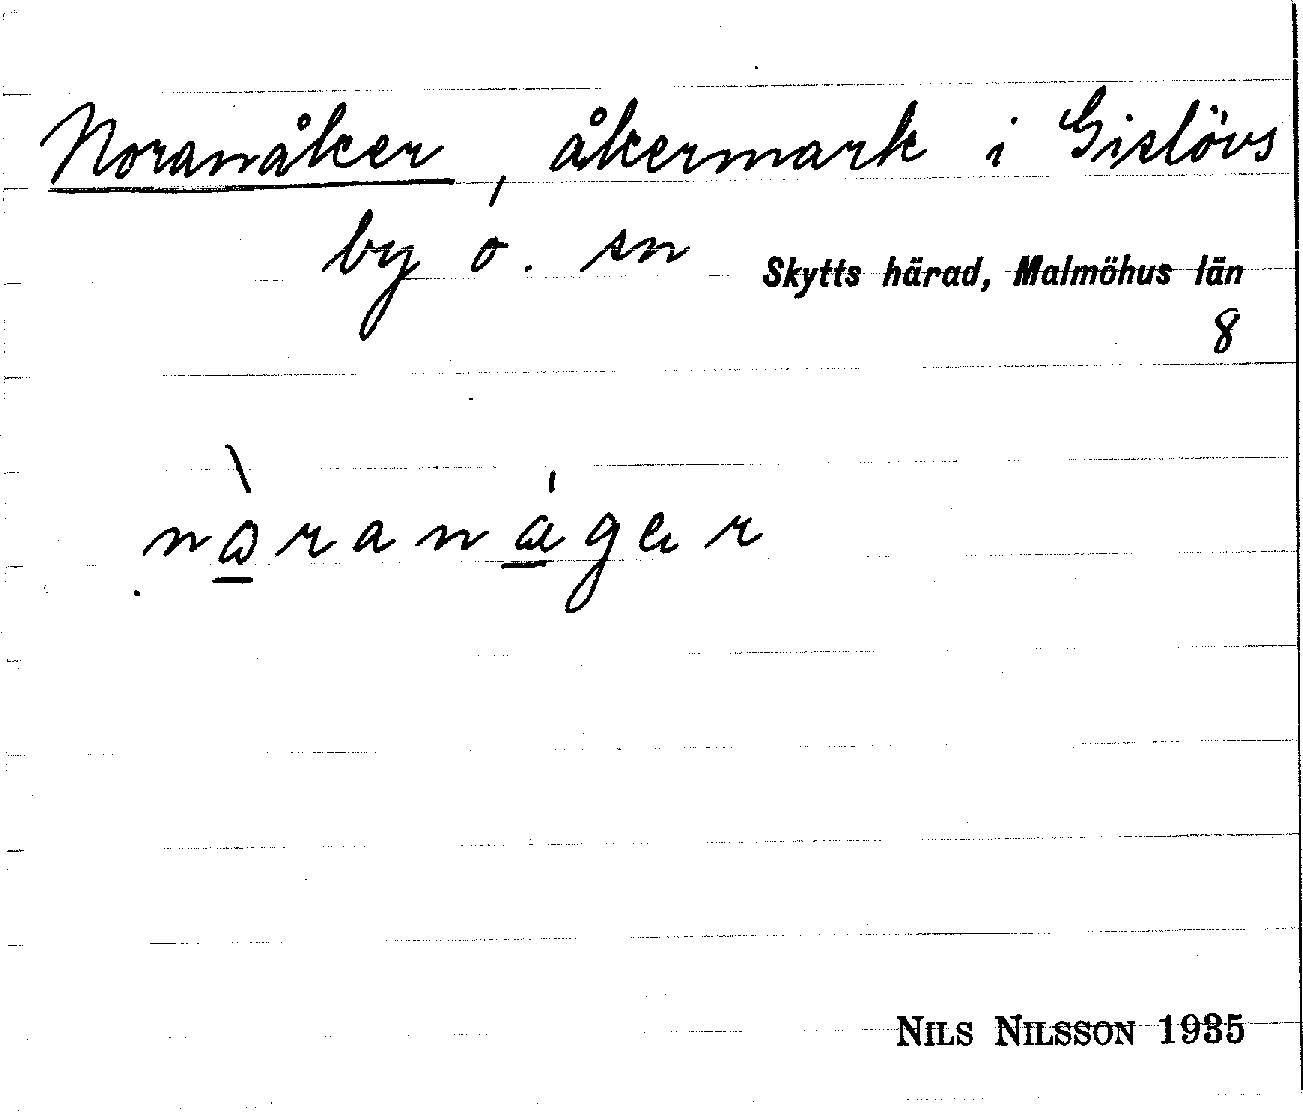 Noranåker, åkermark i Gislövs
by o. sn Skytts härad, Malmöhus län
8
nɷ̀ranǻger
NILS NILSSON 1935